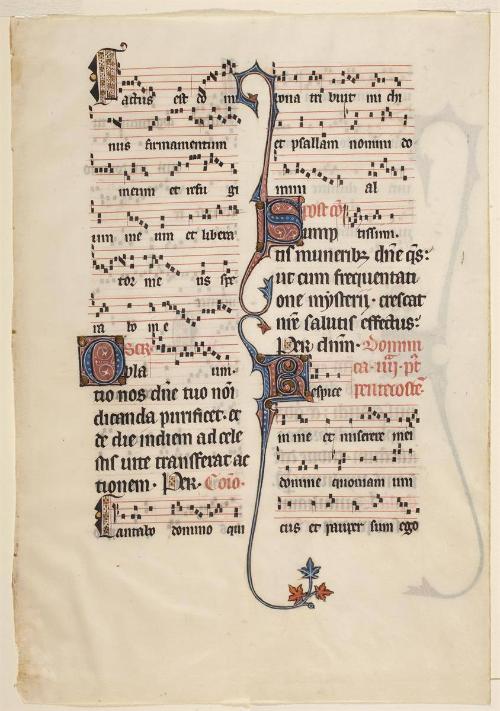 Factus est do mi
nus firmamentum
meum et refu gi
um me um et libera
tor me us spe
ra bo in e
um.
Secr.
Obla
tio nos dñe tuo noı
dicanda purificet. et
de die indiem ad cele
stis uite transferat ac
tionem. Per. Coıo.
Cantabo domino qui
bona tri buit mi chi
et psallam nomini do
mini al
Post cō.
Sump tissimi.
tis muneribz dñe qs:
ut cum frequentati
one mysterij. crescat
nr̄e salutis effectus:
Per dnm. Domini
ca. iiij. pt
pentecoste.
Respice
in me et miserere mei
domine quoniam uni
cus et pauper sum ego